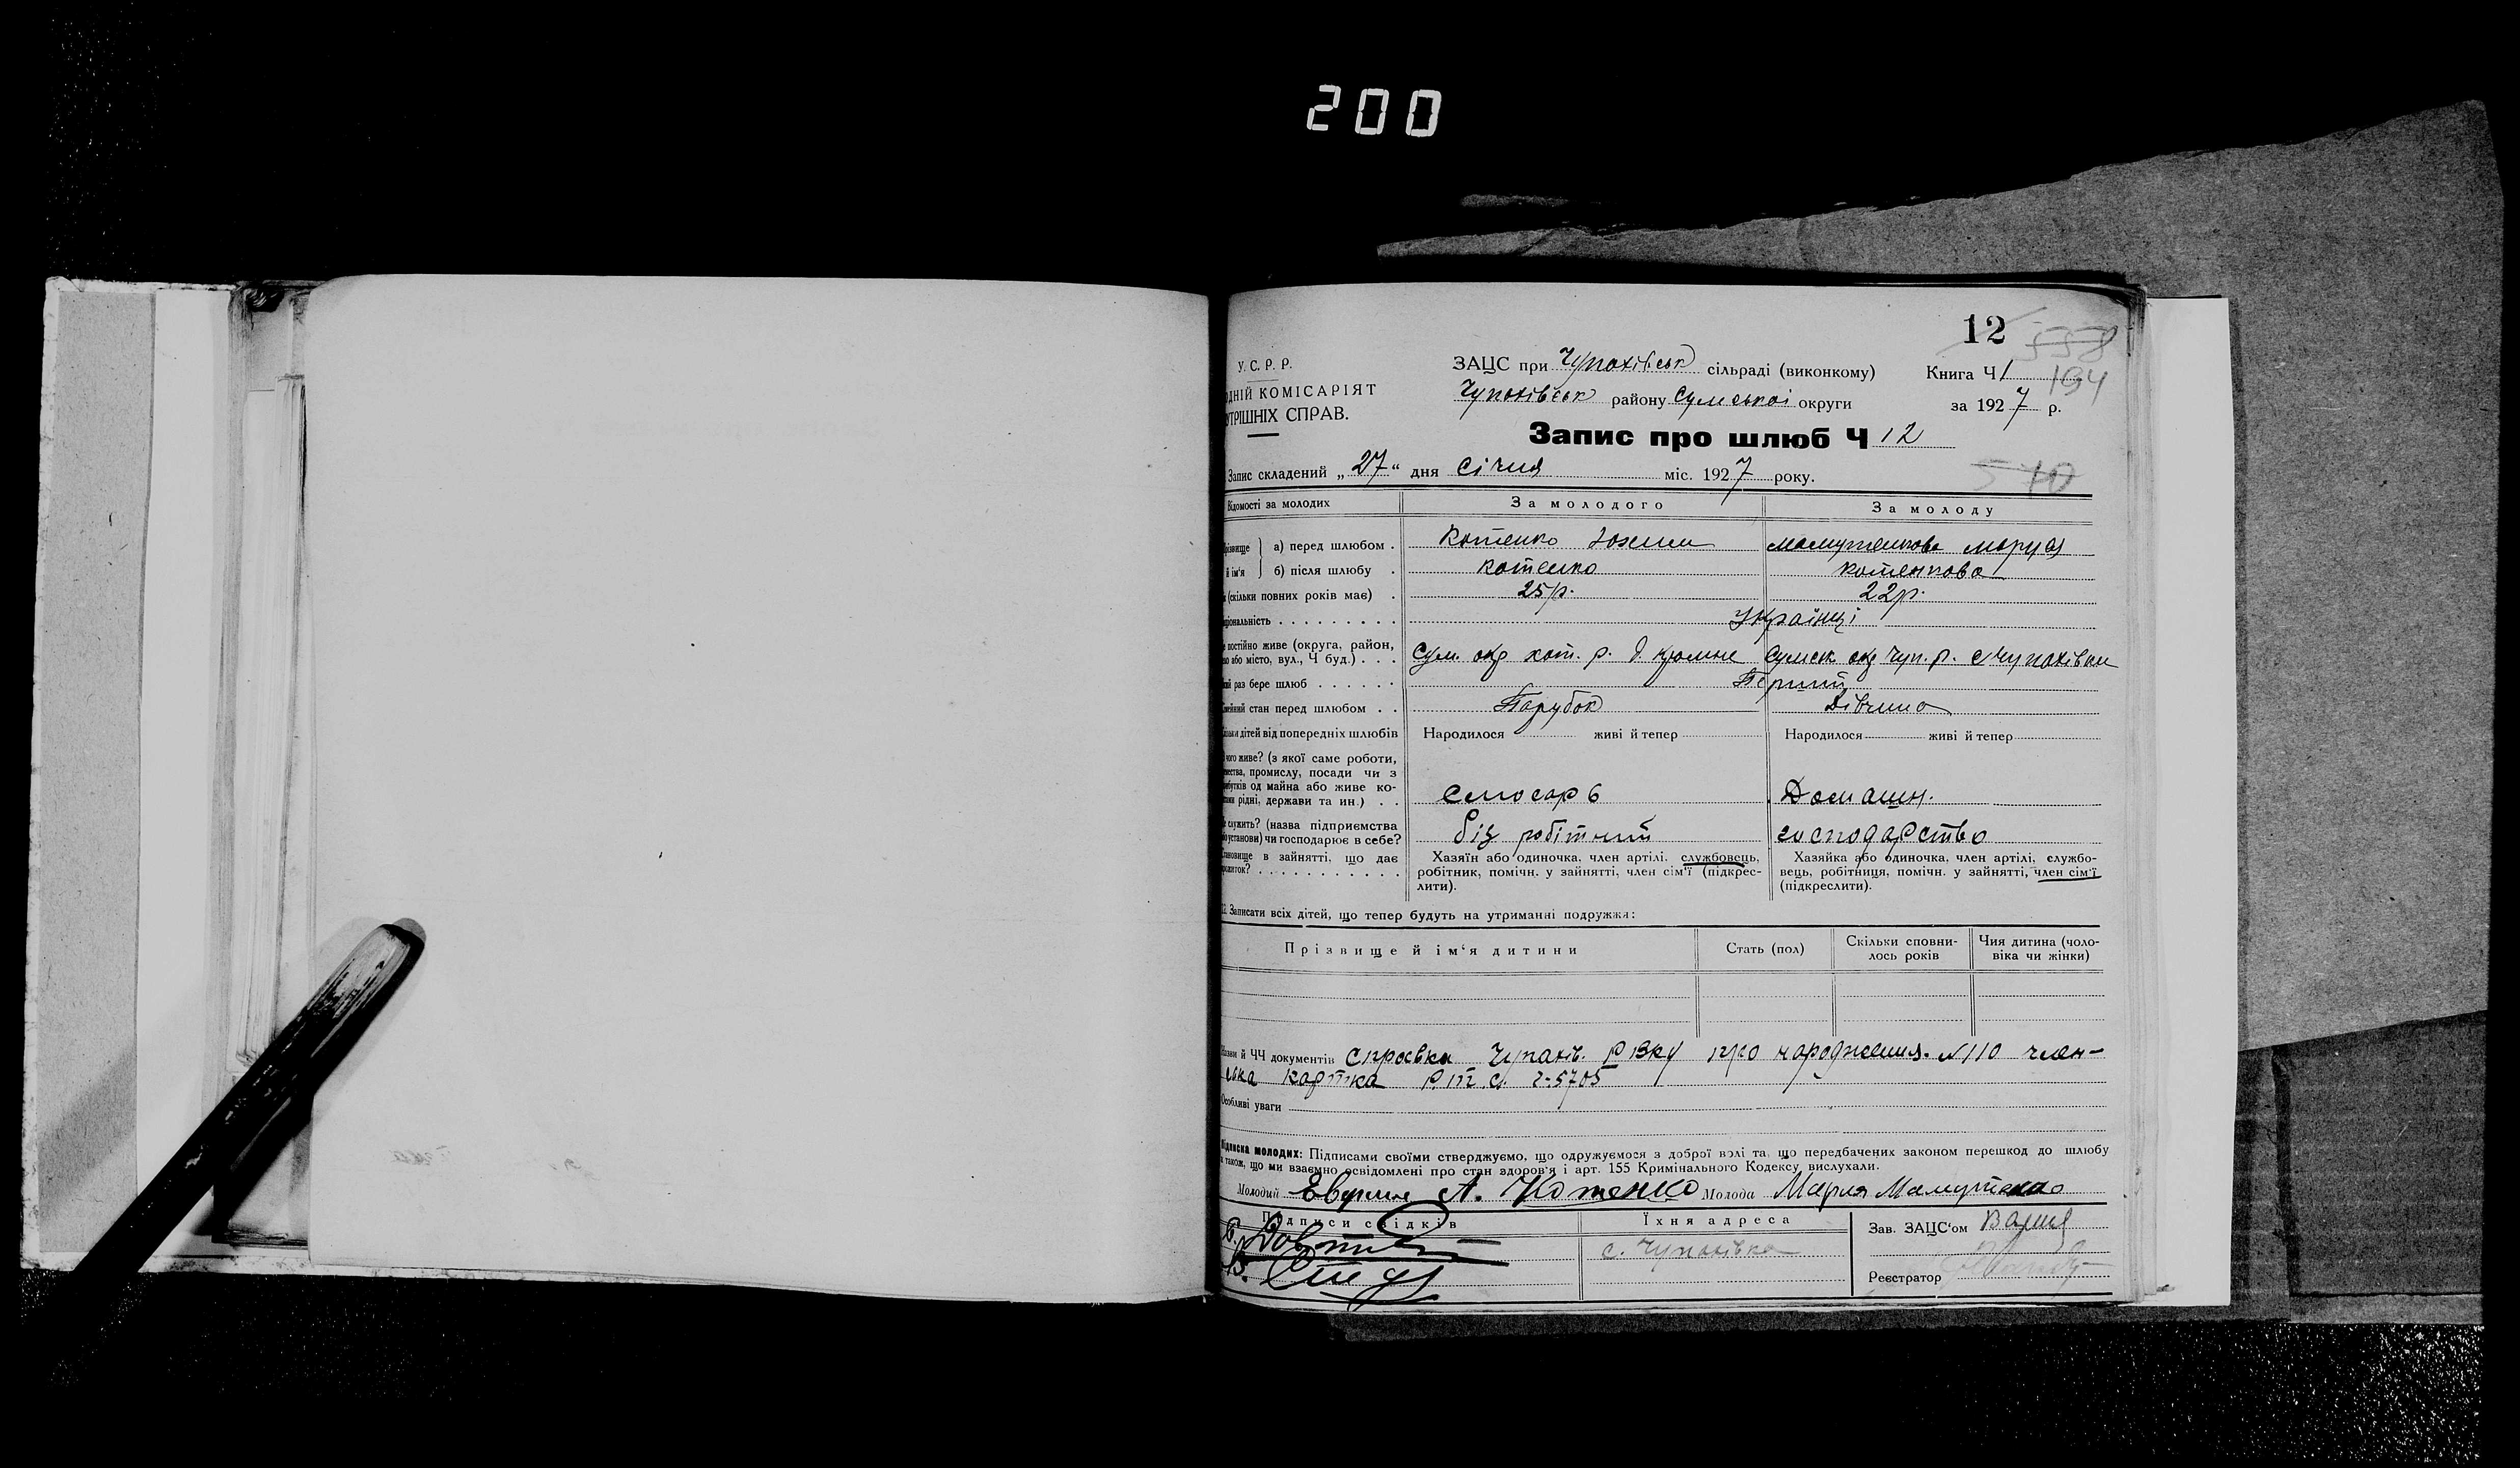 200
12
558
У. С. Р. Р.
ЗАЦС при Чупахівськ сільраді (виконкому)
Книга Ч 1
194
ДНІЙ КОМІСАРІЯТ
Чупахівськ району Сумської округи
за 1927 р.
УТРІШНІХ СПРАВ.
Запис про шлюб Ч 12
Запис складений „27“ дня Січня міс. 1927 року.
570
Відомості за молодих
За молодого
За молоду
а) перед шлюбом .
Котенко
Мамутенкова Маруся
й ім'я б) після шлюбу .
Котенко
Котенкова
(скільки повних років має) .
25 р.
22 р.
Українці
постійно живе (округа, район, або місто, вул., Ч буд.) . . .
Сум. окр хот. р.
Сумск. окр Чуп. р. с Чупахівки
раз бере шлюб . . . . . .
Перший
стан перед шлюбом . .
Парубок
Дівчина
дітей від попередніх шлюбів
Народилося живі й тепер
Народилося живі й тепер
чого живе? (з якої саме роботи,
промислу, посади чи з
од майна або живе ко-
рідні, держави та ин.) . .
Слюсарь
Домашн.
служить? (назва підприємства
установи) чи господарює в себе?
біз робітний
господарство
в зайнятті, що дає
Хазяїн або одиночка, член артілі, службовець,
робітник, помічн. у зайнятті, член сім'ї (підкрес-
лити).
Хазяйка або одиночка, член артілі, службо-
вець, робітниця, помічн. у зайнятті, член сім'ї
(підкреслити).
Записати всіх дітей, що тепер будуть на утриманні подружжя:
Прізвище й ім‘я дитини
Стать (пол)
Скільки сповни-
лось років
Чия дитина (чоло-
віка чи жінки)
й ЧЧ документів Справка Чупахів. РВКу про народження. №110 член-
ська картка Р.П.С. 2-5705
Особливі уваги
Підписка молодих: Підписами своїми стверджуємо, що одружуємося з доброї волі та, що передбачених законом перешкод до шлюбу
також, що ми взаємно освідомлені про стан здоров'я і арт. 155 Кримінального Кодексу вислухали.
Молодий А. Котенко Молода Мария Мамутенко
Підписи свідків
Їхня адреса
Зав. ЗАЦС‘ом
с. Чупахівка
Реєстратор